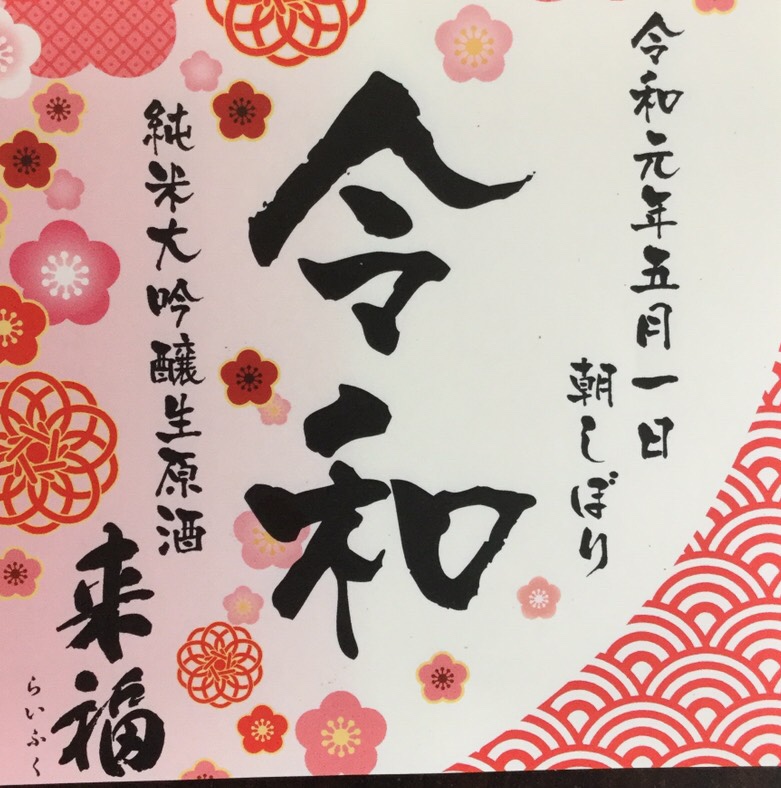 令和元年五月一日
朝しぼり
令和
純米大吟醸生原酒
来福
らいふく